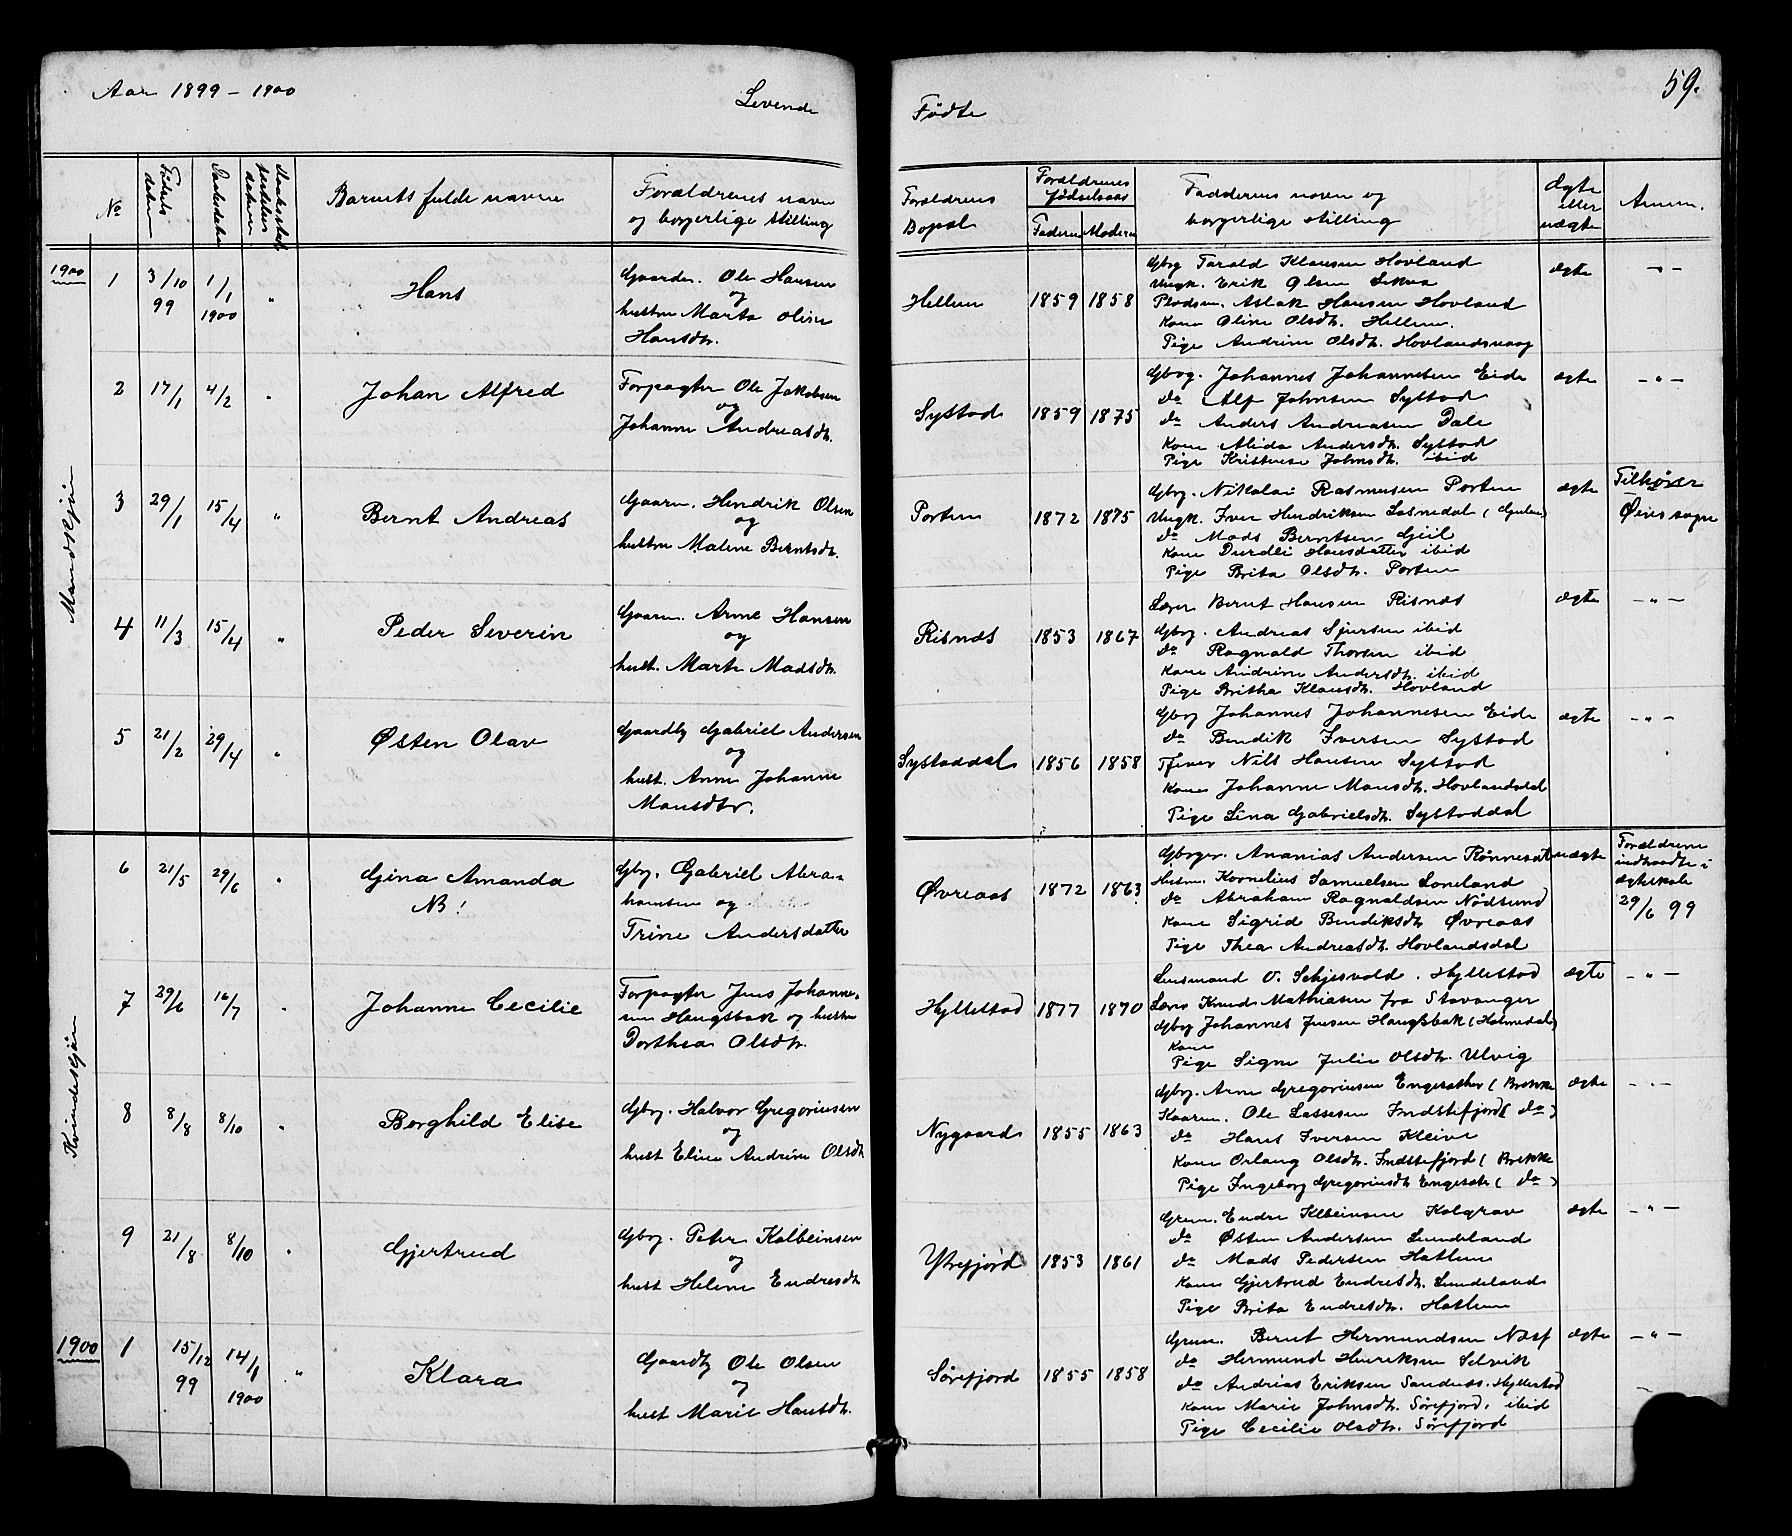 Aar 1899 - 1900
Levende
Fødte
59.
No
Fødsels daten
Daabsdaten
Barnets fulde navne
Forældrenes navn og borgerlige stilling
Forældrens Bopæl
Forældrenes fødselsaar
Faderen Moderen
Fadderens navn og borgerlige stilling
Ægte eller uægte
Anm.
Mandkjøn
1900
1 3/10 99 1/1 1900 " Hans
Gaardr. Ole Hansen
og
hustru Marta Oline
Hansdtr.
Hellem 1859 1858
Gbrg Tarald Klausen Hovland
Ungk. Erik Olsen
Pladsm. Aslak Hansen Hovland
Kone Oline Olsdtr. Hellem.
Pige Andrine Olsdtr. Hovlandsvaag
ægte - " -
2 17/1 4/2 " Johan Alfred
Forpagter Ole Jakobsen
og
Johanne Andreasdtr.
Systad 1859 1875
Gbrg. Johannes Johannesen Eide
do Alf Johnsen Systad
do Anders Andreasen Dale
Kone Alida Andersdtr. Systad
Pige Kristense Johnsdtr. ibid
ægte - " -
3 29/1 15/4 " Bernt Andreas
Gaarm. Hendrik Olsen
og
hustru Malene Berntsdtr.
Porten 1872 1875
Gbrg. Nikolai Rasmusen Porten
Ungk. Iver Hendriksen Losnedal (Gulen)
do Mads Berntsen Gjeil
Kone Durdei Hansdatter ibid
Pige Brita Olsdtr. Porten
ægte Tilhører
Øens sogn
4 11/3 15/4 " Peder Severin
Gaarm. Arne Hansen
og
hust. Marte Madsdtr.
Risnæs 1853 1867
Lærer Bernt Hansen Risnæs
Gbrg. Andreas Sjursen ibid
do Ragnald Thorsen ibid
Kone Andrine Andersdtr. ibid
Pige Britha Klausdtr. Hovland
ægte - " -
5 21/2 29/4 " Østen Olav
Gaardbr Gabriel Andersen
og
hust. Anne Johanne
Monsdtr.
Systaddal 1856 1858
Gbrg Johannes Johannesen Eide
do Bendik Iversen Systad
Nils Hansen Systad
Kone Johanne Monsdtr. Hovlandsdal
Pige Lina Gabrielsdtr. Systaddal
ægte - " -
Kvindekjøn
6 21/5 29/6 " Gina Amanda
NB!
Gbrg. Gabriel Abra-
hamsen og
Trine Andersdatter
Øvreaas 1872 1863
Gbrger. Ananias Andersen Rønneset
Husm. Kornelius Samuelsen Loneland
do Abraham Ragnaldsen Nødsund
Kone Sigrid Bendiksdtr Øvreaas
Pige Thea Andreasdtr. Hovlandsdal
uægte Forældrene
indtraadte i
ægteskab
29/6 99
7 29/6 16/7 " Johanne Cecilie
Forpagter Jens Johanne-
sen Haugsbak og hustru
Dorthea Olsdtr.
Hyllestad 1877 1870
Lensmand O. Schjesvold. Hyllestad
Lærer Knud Mathiasen fra Stavanger
Gbrg Johannes Jensen Haugsbak (Holmedal)
Kone
Pige Signe Julie Olsdtr. Ulvig
ægte - " -
8 8/8 8/10 " Borghild Elise
Gbrg. Halvor Gregoriusen
og
hust Eline Andrine Olsdtr
Nygaard 1855 1863
Gbrg. Arne Gregoriusen Engesæther (Brekke
Kaarm. Ole Lassesen Indstefjord (do)
do Hans Iversen Kleive
Kone Orlaug Olsdtr. Indstefjord (Brekke
Pige Ingeborg Gregoriusdtr Engesæter (do)
ægte - " -
9 21/8 8/10 " Gjertrud
Gbrg. Peter Kolbeinsen
og
hust Helene Endresdtr
Ytrefjord 1853 1861
Grm. Endre Kolbeinsen Kolgrav
do Østen Andersen Lundeland
do Mads Pedersen Hatlem
Kone Gjertrud Endresdtr. Lundeland
Pige Brita Endresdtr. Hatlem
ægte - " -
1900
1 15/12 99 14/1 1900 " Klara
Gaardbr Ole Olsen
og
hust Marie Hansdtr.
Sørefjord 1855 1858
Grm. Bernt Hermundsen Næsf
do Hermund Henriksen Selvik
do Andrias Eriksen Sandnæs. Hyllestad
Kone Marie Johnsdtr. Sørefjord. ibid
Pige Cecilie Olsdtr. Sørefjord
ægte - " -